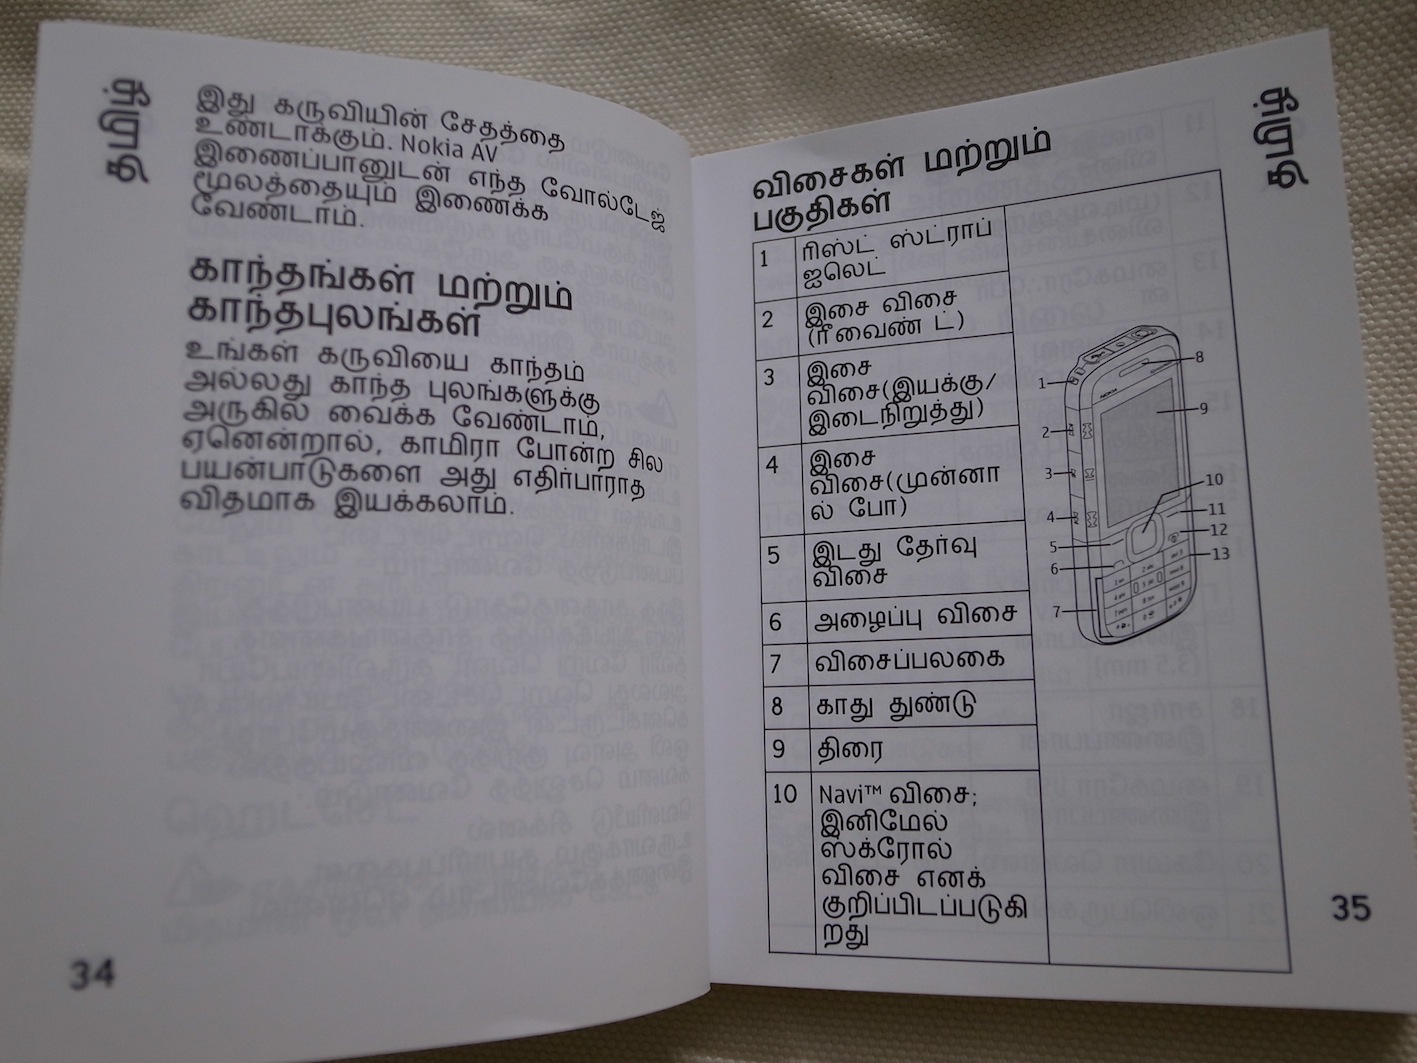 தமிழ்
இது கருவியின் சேதத்தை
உண்டாக்கும். Nokia AV
இணைப்பானுடன் எந்த வோல்டேஜ்
மூலத்தையும் இணைக்க
வேண்டாம்.
காந்தங்கள் மற்றும்
காந்தபுலங்கள்
உங்கள் கருவியை காந்தம்
அல்லது காந்த புலங்களுக்கு
அருகில் வைக்க வேண்டாம்,
ஏனென்றால், காமிரா போன்ற சில
பயன்பாடுகளை அது எதிர்பாராத
விதமாக இயக்கலாம்.
34
தமிழ்
விசைகள் மற்றும்
பகுதிகள்
1 ரிஸ்ட் ஸ்ட்ராப்
ஐலெட்
2 இசை விசை
(ரீவைண் ட்)
3 இசை
விசை(இயக்கு/
இடைநிறுத்து)
4 இசை
விசை(முன்னா
ல் போ)
5 இடது தேர்வு
விசை
6 அழைப்பு விசை
7 விசைப்பலகை
8 காது துண்டு
9 திரை
10 Navi™ விசை;
இனிமேல்
ஸ்க்ரோல்
விசை எனக்
குறிப்பிடப்படுகி
றது
NOKIA
1
2
3
4
5
6
7
8
9
10
11
12
13
35